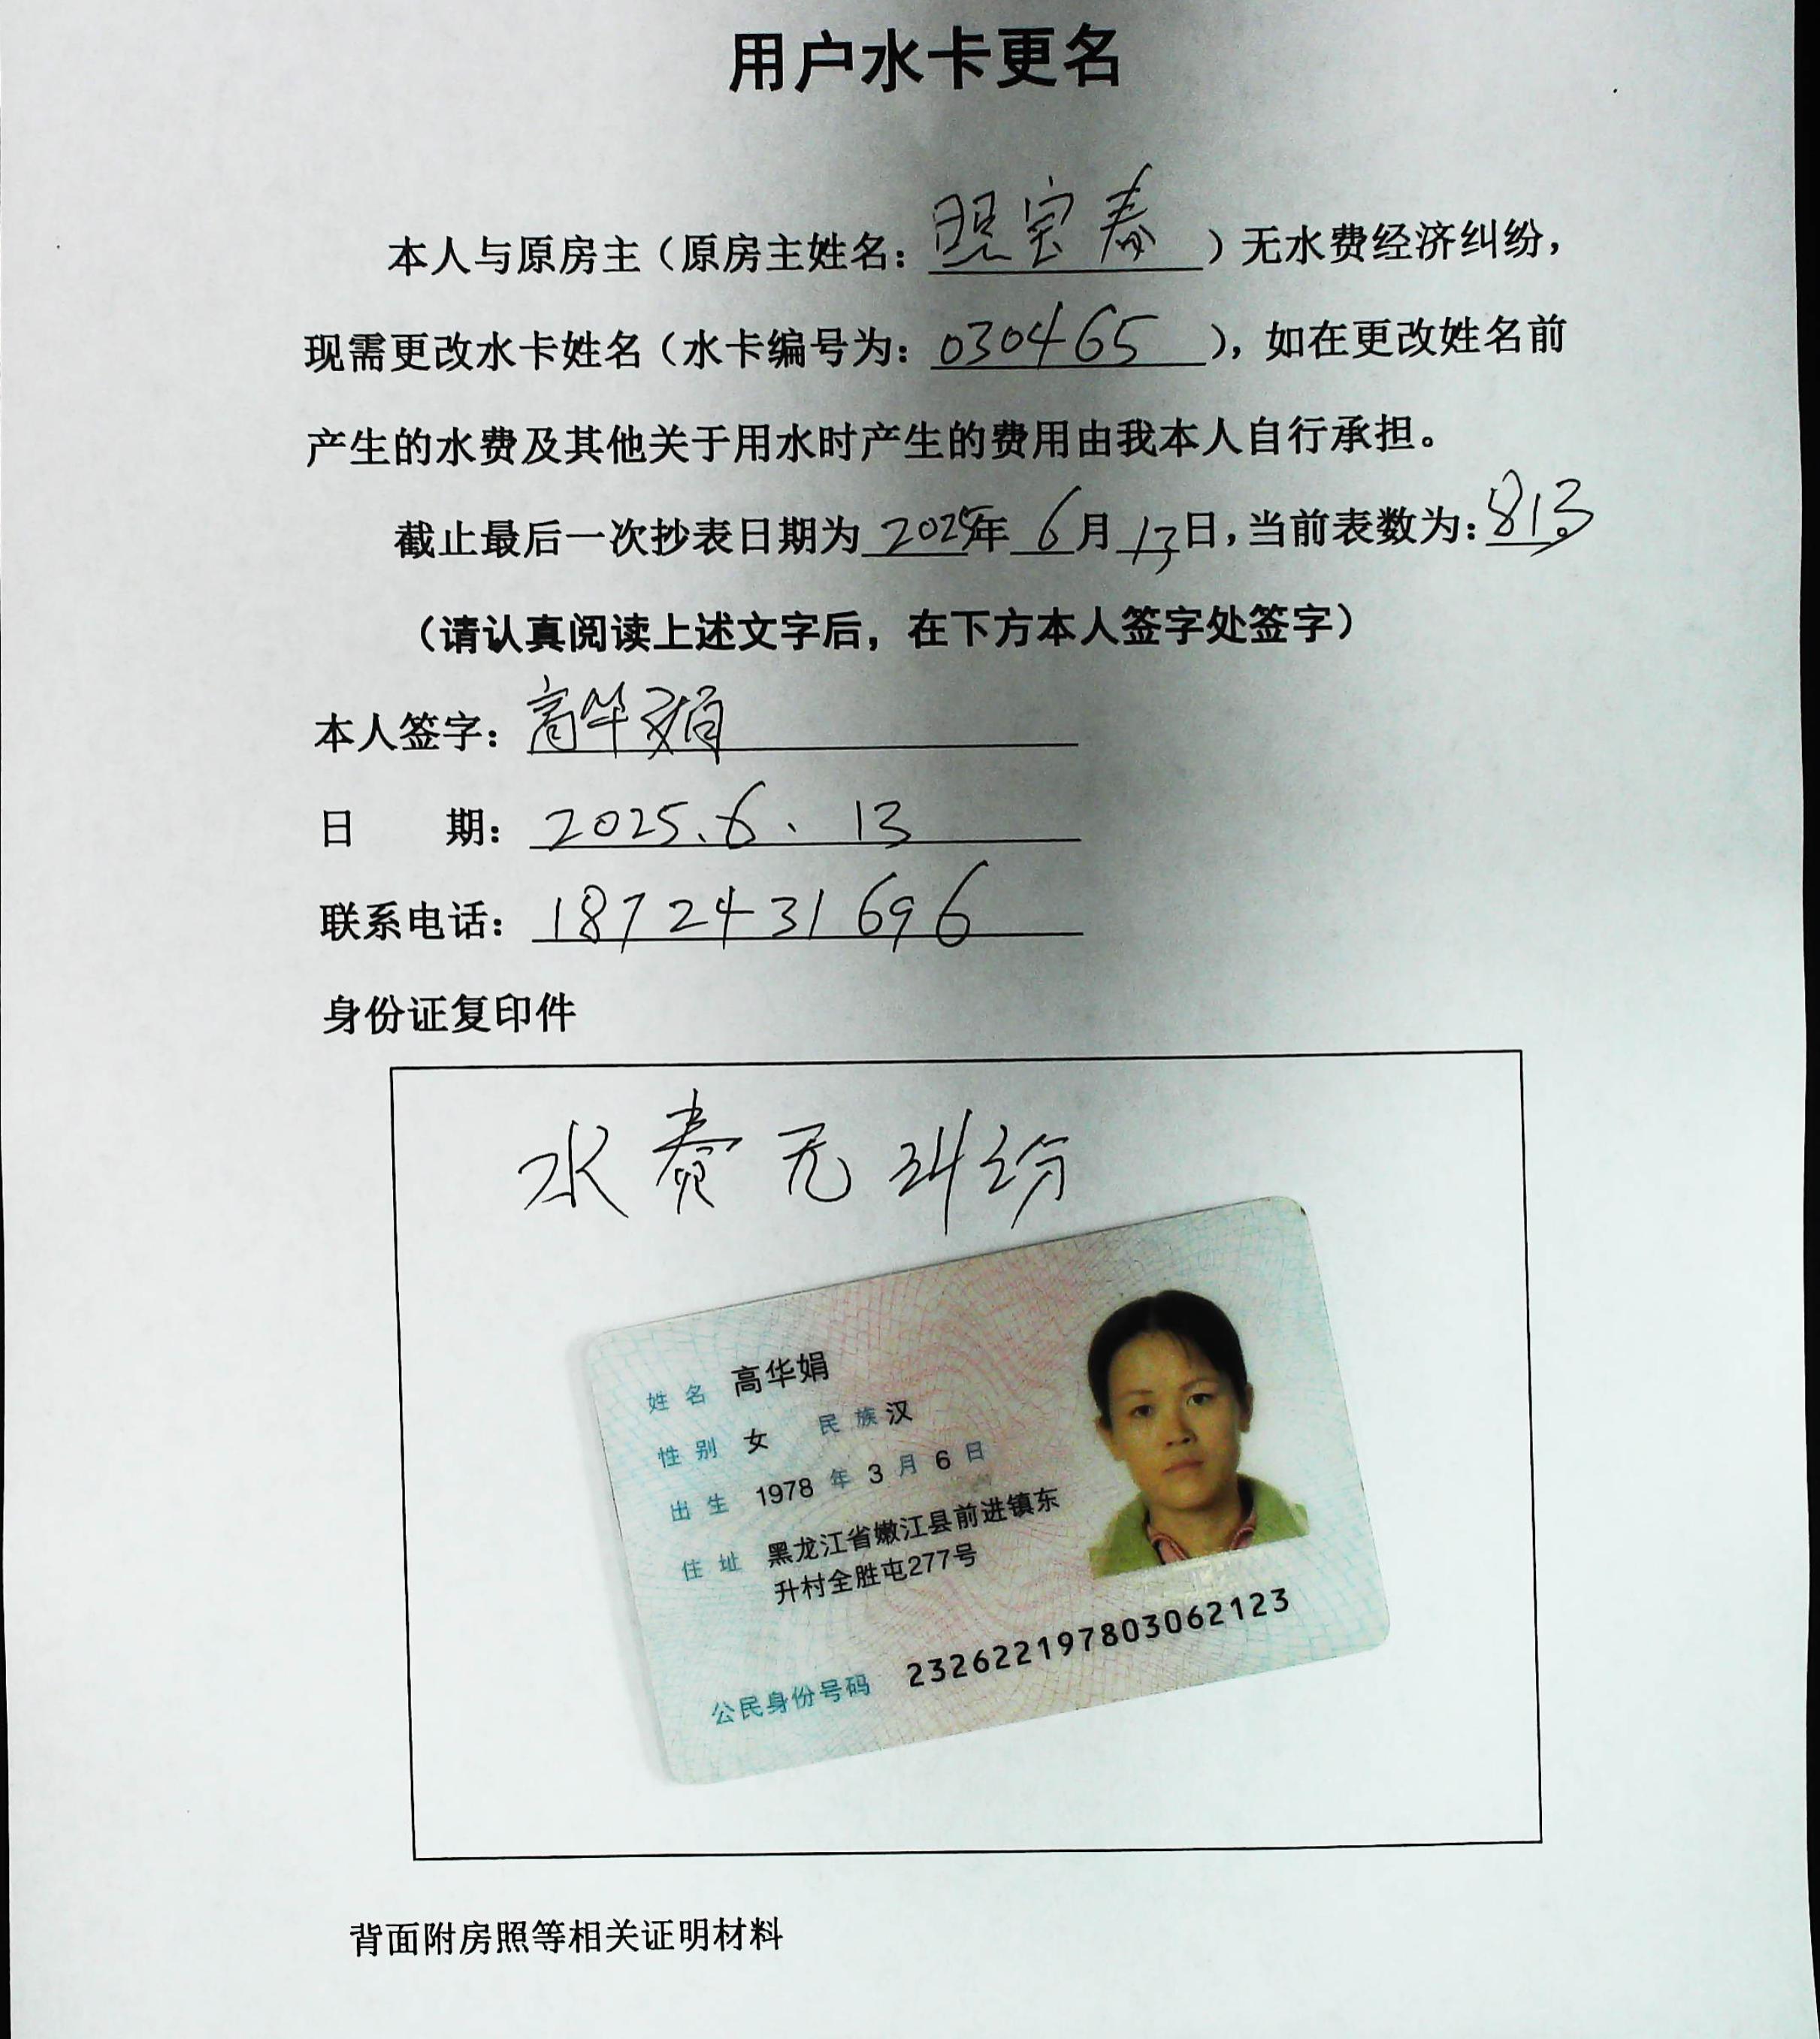 用户水卡更名
本人与原房主（原房主姓名：宝春）无水费经济纠纷，
现需更改水卡姓名（水卡编号为：030465），如在更改姓名前
产生的水费及其他关于用水时产生的费用由我本人自行承担。
截止最后一次抄表日期为2025年6月13日，当前表数为：813
（请认真阅读上述文字后，在下方本人签字处签字）
本人签字：高华娟
日 期：2025.6.13
联系电话：1872431696
身份证复印件
水费无纠纷
姓名 高华娟
性别 女 民族 汉
出生 1978 年 3 月 6 日
住址 黑龙江省嫩江县前进镇东
升村全胜屯277号
公民身份号码 232622197803062123
背面附房照等相关证明材料